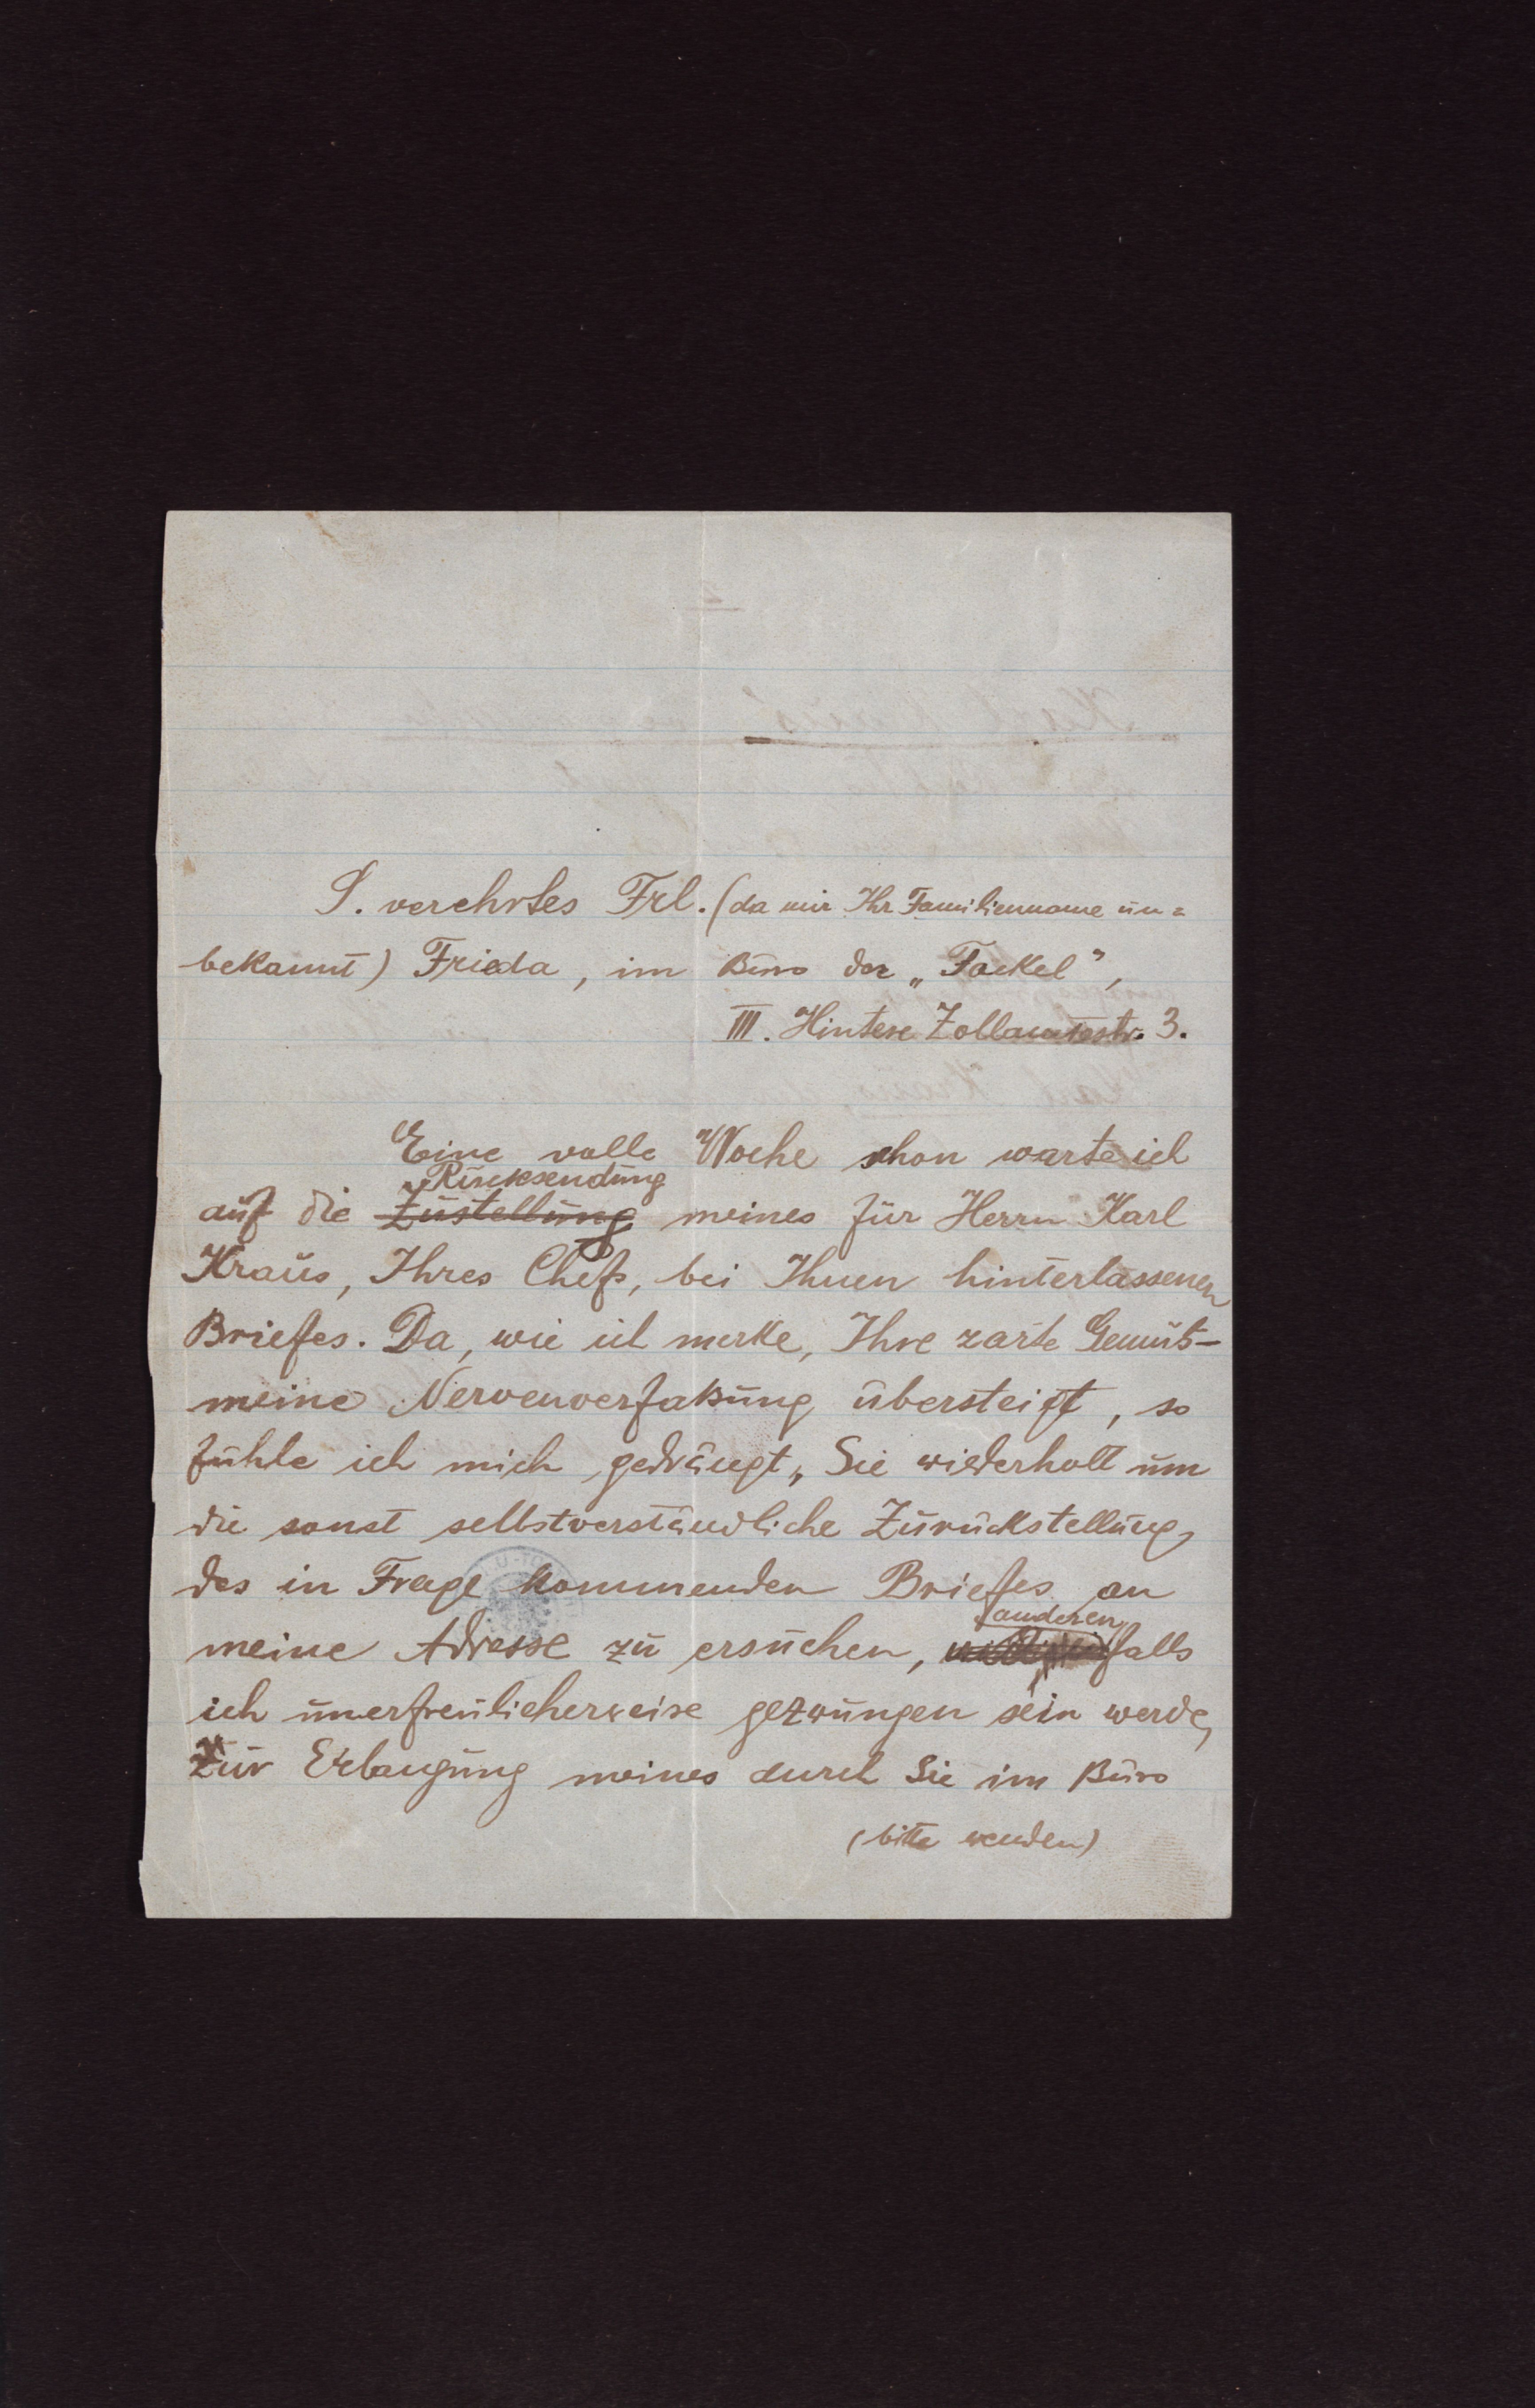 S. verehrtes Frl. (da mir Ihr Familienname un=
bekannt) Frieda, im Büro der „Fackel”,
III. Hintere Zollamtsstr. 3.
Eine volle Woche schon warte ich
Rücksendung
auf die Zustellung meines für Herrn Karl
Kraus, Ihres Chefs, bei Ihnen hinterlassenen
Briefes. Da, wie ich merke, Ihre zarte Gemüts-
meine Nervenverfaßung übersteigt, so
fühle ich mich gedrängt, Sie wiederholt um
die sonst selbstverständliche Zurückstellung
des in Frage kommenden Briefes an
anderen
meine Adresse zu ersuchen, falls
ich unerfreulicherweise gezwungen sein werde,
zur Erlangung meines durch Sie im Büro
(bitte wenden)